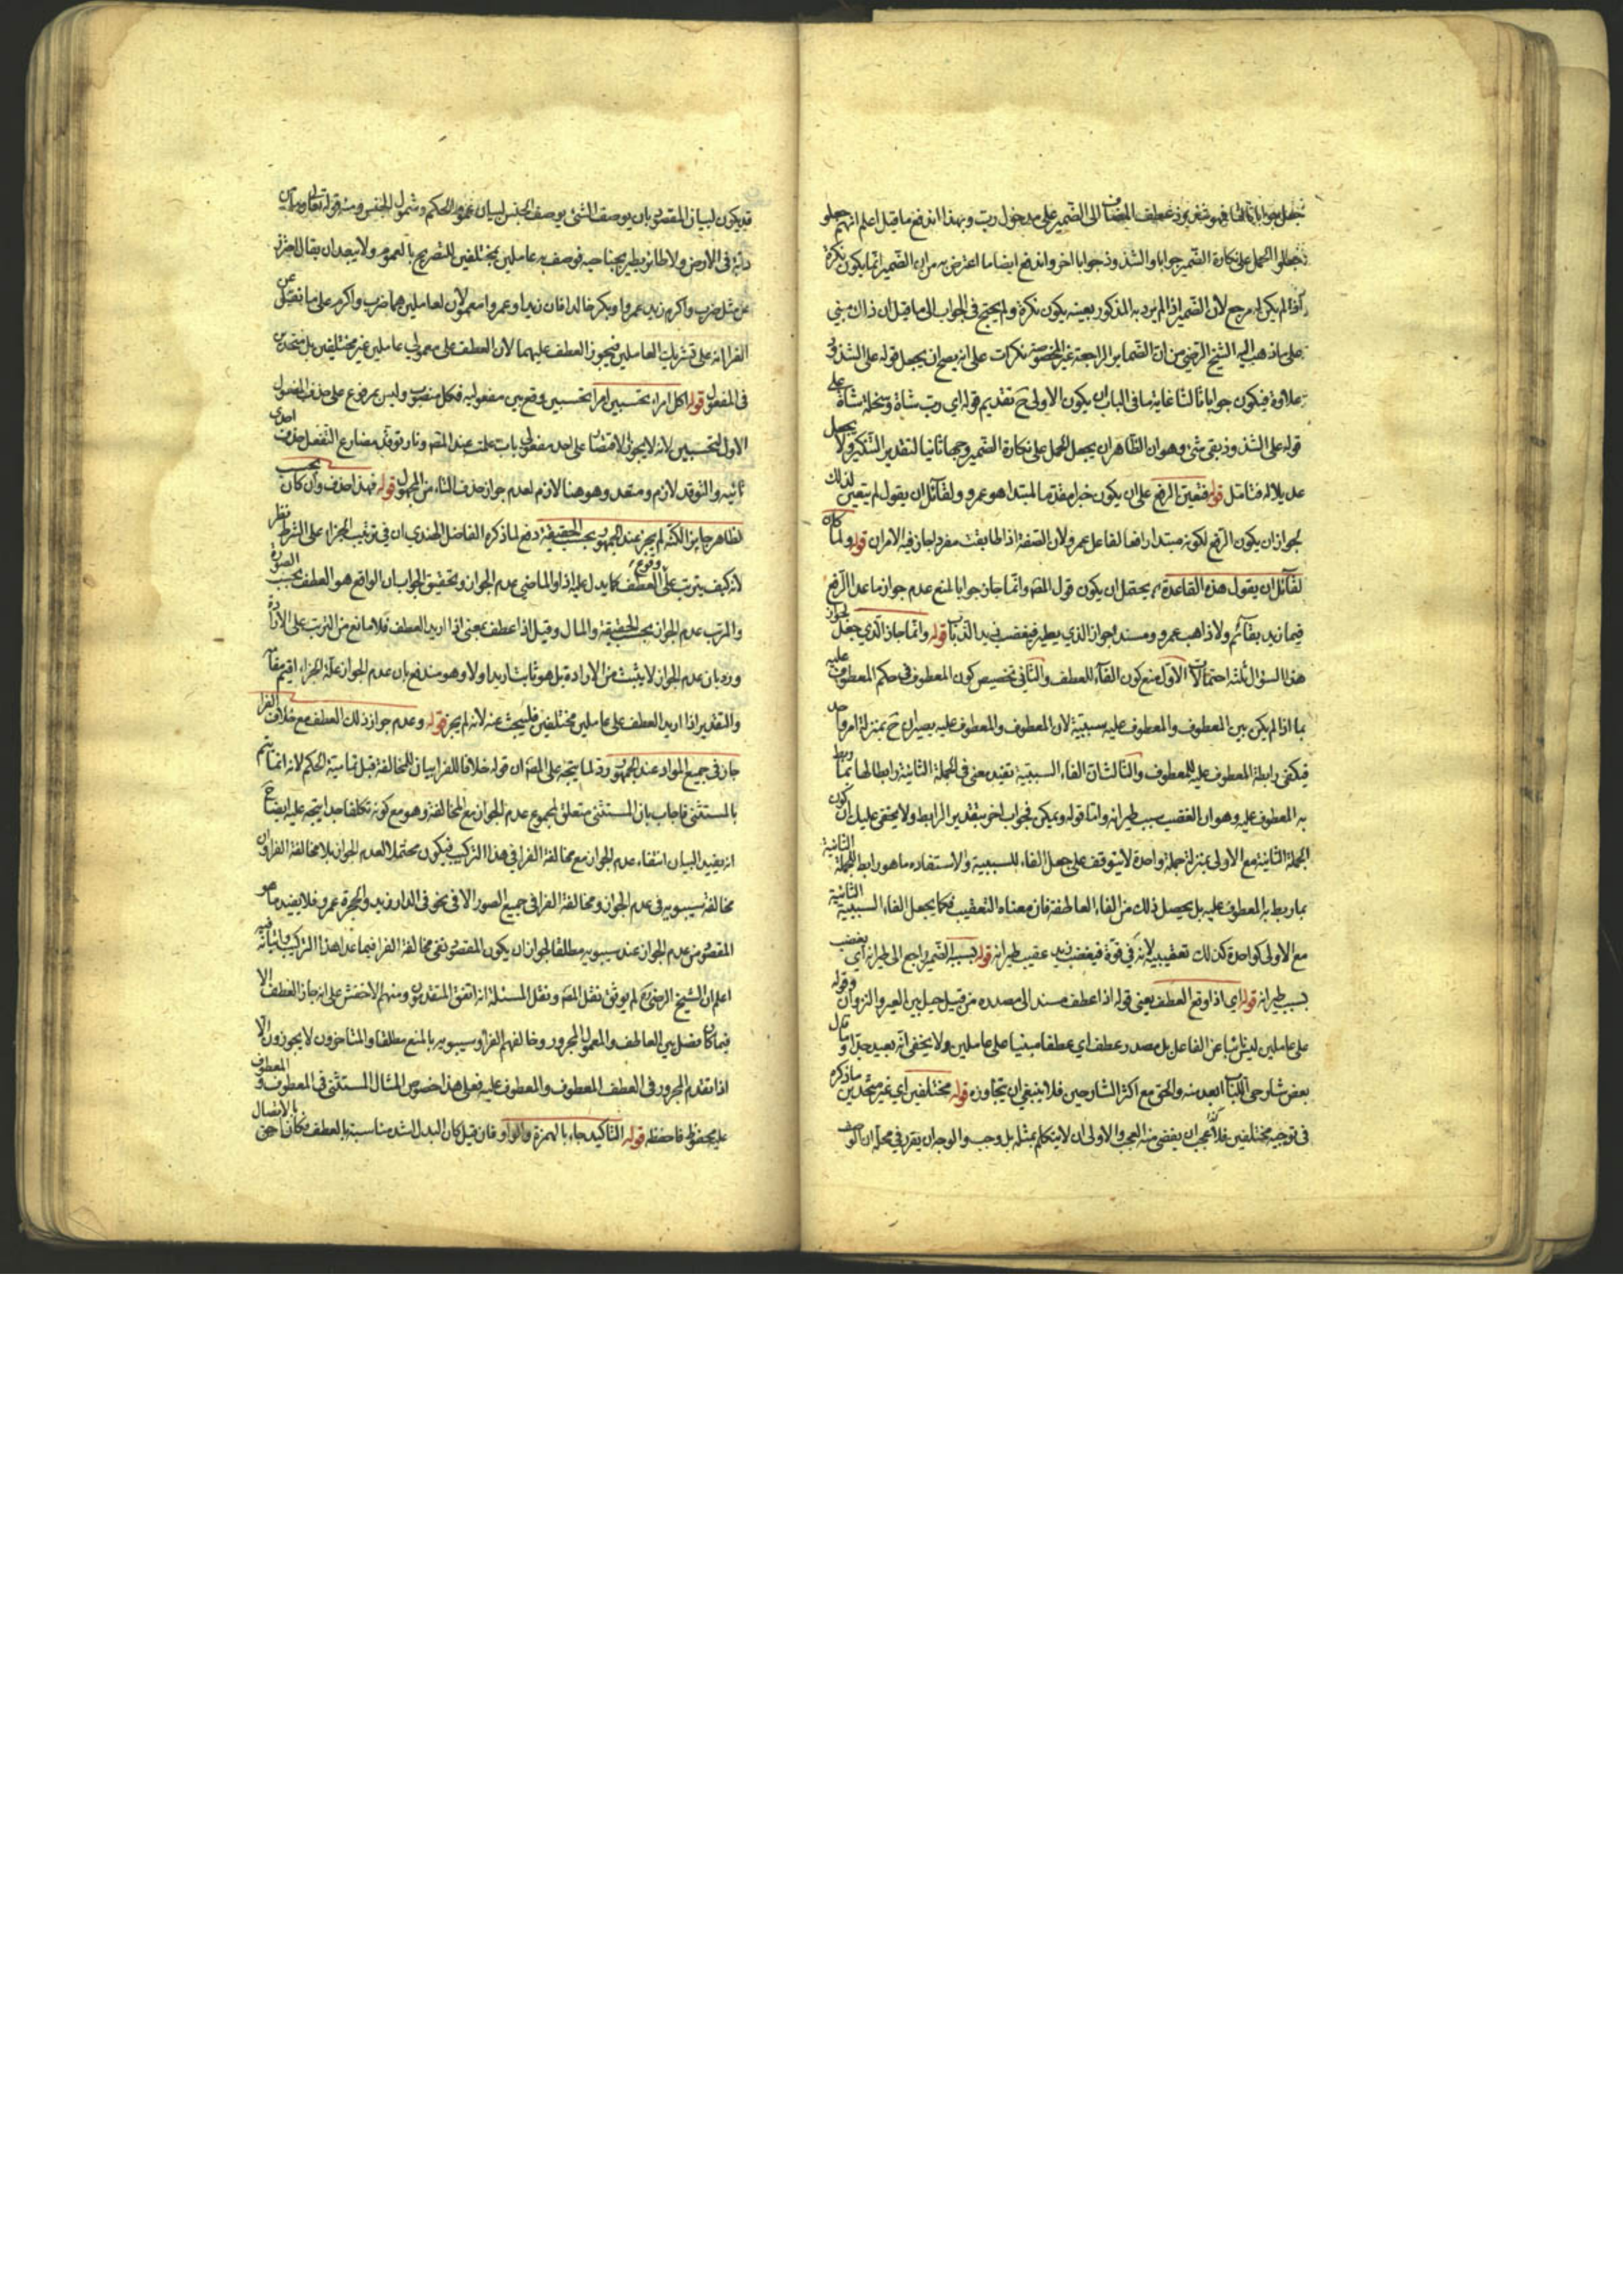 نجعل جوابا ثالثا فهو شذوذ عطف المضاف الى الضمير على مدخول رب وبهذا اندفع ما قيل اعلم انهم جعلو
فجعلوا الحمل على نكارة الضمير جوابا والشذوذ جوابا اخر واندفع ايضا ما اعترض به من ان الضمير انما يكون نكرة
اذا لم يكن له مرجع لان الضمير اذا لم يرد به المذكور بعينه يكون نكرة ولم يحتج في الجواب الى ما قيل ان ذاك مبني
على ما ذهب اليه الشيخ الرضي من ان الضماير الراجعة غير المخصوصة نكرات على انه يصح ان يجعل قوله على الشذوذ
علاوة فيكون جوابا ثالثا غاية ما في الباب ان يكون الاولى ح تقديم قوله اي رب شاة وسخلة شاة على
قوله على الشذوذ بقي شئ وهو ان الظاهر ان يجعل الحمل على نكارة الضمير وجها ثانيا لتقدير التنكير ولا يجعل
عديلا له فتامل قوله فتعين الرفع على ان يكون خبرا مقدما لمبتدا هو عمرو ولقائل ان يقول لم يتعين لذلك
لجواز ان يكون الرفع لكونه مبتدا رافعا لفاعل عمرو لان الصفة اذا طابقت مفردا جاز فيه الامران قوله ولما كان
لقائل ان يقول هذه القاعدة يحتمل ان يكون قول المص وانما جاز جوابا لمنع عدم جواز ما عدا الرفع
فيما زيد بقائم ولا ذاهب عمرو ومسند لجواز الذي يطير فيغضب زيد الذباب قوله وانما جاز الذي جعل لجواز
هذا السؤال ثلثة احتمالات الاول منع كون الفاء للعطف والثاني تخصيص كون المعطوف في حكم المعطوف عليه
بما اذا لم يكن بين المعطوف والمعطوف عليه سببية لان المعطوف والمعطوف عليه يصيران ح بمنزلة امر واحد
فيكفي رابطة المعطوف عليه للمعطوف والثالث ان الفاء السببية تفيد معنى في الجملة الثانية رابطا لها بما ربط
به المعطوف عليه وهو ان الغضب بسبب طيرانه واما قوله ويمكن فجواب اخر بتقدير الرابط ولا يخفى عليك ان كون
الجملة الثانية مع الاولى بمنزلة جملة واحدة لا يتوقف على جعل الفاء للسببية ولا استفاده ما هو رابط للجملة الثانية
بما ربط به المعطوف عليه بل يحصل ذلك من الفاء العاطفة فان معناه التعقيب فكما يجعل الفاء السببية الثانية
مع الاولى كواحدة كذلك تعقيبية لانه في قوة فيغضب زيد عقيب طيرانه قوله بسببه الضمير راجع الى طيرانه اي يغضب
بسبب طيرانه قوله اي اذا وقع العطف يعني قوله اذا عطف مسند الى مصدره من قبيل حيل بين العير والنزوان وقوله
على عاملين ليس نائبا عن الفاعل بل مصدر عطف اي عطفا مبنيا على عاملين ولا يخفى انه بعيد جدا وما قال
بعض شارحي اللباب ابعد منه والحق مع اكثر الشارحين فلا ينبغي ان يتجاوزه قوله مختلفين اي غير متحدين ما ذكره
في توجيه مختلفين فلا عجب ان يفضى منه العجب والاولى ان لا يتكلم بمثله بل وجه الوجه ان يقرر في محله ان الوصف
قد يكون لبيان المقصود بان يوصف الشئ بوصف الجنس لبيان عموم الحكم وشمول الجنس ومنه قوله تعالى وما من
دابة في الارض ولا طائر يطير بجناحيه فوصف به عاملين بمختلفين للتصريح بالعموم ولا يبعد ان يقال احترز
عن مثل ضرب واكرم زيد عمروا وبكر خالدا فان زيدا وعمروا معمولان لعاملين هما ضرب واكرم على ما نقل عن
الفرا انه على تشريك العاملين فيجوز العطف عليهما لان العطف على معمولي عاملين غير مختلفين بل متحدين
في المفعول قوله اكل امراء تحسبين امرا تحسبين وقع بين مفعوليه فكل منصوب وليس بمرفوع على حذف المفعول
الاول لتحسبين لانه لا يجوز الاقتصار على احد مفعولي باب علمت عند المص ونار توقد مضارع التفعل حذفت احدى
تائيه والتوقد لازم ومتعد وهو هنا لازم لعدم جواز حذف التاء من المجهول قوله فهذا احذف وان كان بحسب
الظاهر جايزا لكنه لم يجز عند الجمهور بحسب الحقيقة دفع لما ذكره الفاضل الهندي ان في ترتيب الجزاء على الشرط نظر
لانه كيف يترتب على وقوع العطف كما يدل عليه اذا والماضي عدم الجواز وتحقيق الجواب ان الواقع هو العطف بحسب الصورة
والمرتب عدم الجواز بحسب الحقيقة والمال وقيل اذا عطف بمعنى اذا اريد العطف فلا مانع من الترتب على الارادة
ورد بان عدم الجواز لا يثبت من الارادة بل هو ثابت اريد او لا وهو مندفع بان عدم الجواز علة الجزاء اقيم مقامه
والتقدير اذا اريد العطف على عاملين مختلفين فليبحث عنه لانه لم يجز قوله وعدم جواز ذلك العطف مع خلاف الفرا
جار في جميع المواد عند الجمهور رد لما يتجه على المص ان قوله خلافا للفرا بيان للمخالفة قبل تمامية الحكم لانه انما يتم
بالمستثنى فاجاب بان المستثنى متعلق بمجموع عدم الجواز مع المخالفة وهو مع كونه تكلفا جدا يتجه عليه ايضا ح
انه يفيد البيان انتفاء عدم الجواز مع مخالفة الفرا في هذا التركيب فيكون محتملا لعدم الجواز بلا مخالفة الفرا وان
مخالفة سيبويه في عدم الجواز ومخالفة الفرا في جميع الصور الا في نحو في الدار زيد والحجرة عمرو فلا يفيد ما هو
المقصود من عدم الجواز عند سيبويه مطلقا لجواز ان يكون المقصود نفي مخالفة الفرا فيما عدا هذا التركيب واثباته فيه
اعلم ان الشيخ الرضي رح لم يوثق نقل المص ونقل المسئلة انه اتفق المتقدمون ومنهم الاخفش على انه جاز العطف الا
فيما كان فصل بين العاطف والمعمول المجرور وخالفهم الفرا وسيبويه بالمنع مطلقا والمتاخرون لا يجوزون الا
اذا تقدم المجرور في العطف المعطوف والمعطوف عليه فعلى هذا خصوص المثال المستثنى في المعطوف والمعطوف
عليه محفوظ فاحفظه قوله التاكيد جاء بالهمزة والواو فان قيل كان البدل اشد مناسبة بالعطف فكان احق بالاتصال